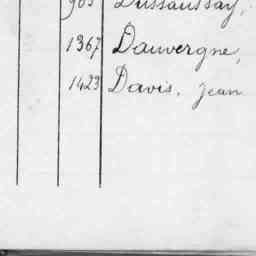 905 Dussaussay,
1367 Dauvergne,
1423 Davis, Jean